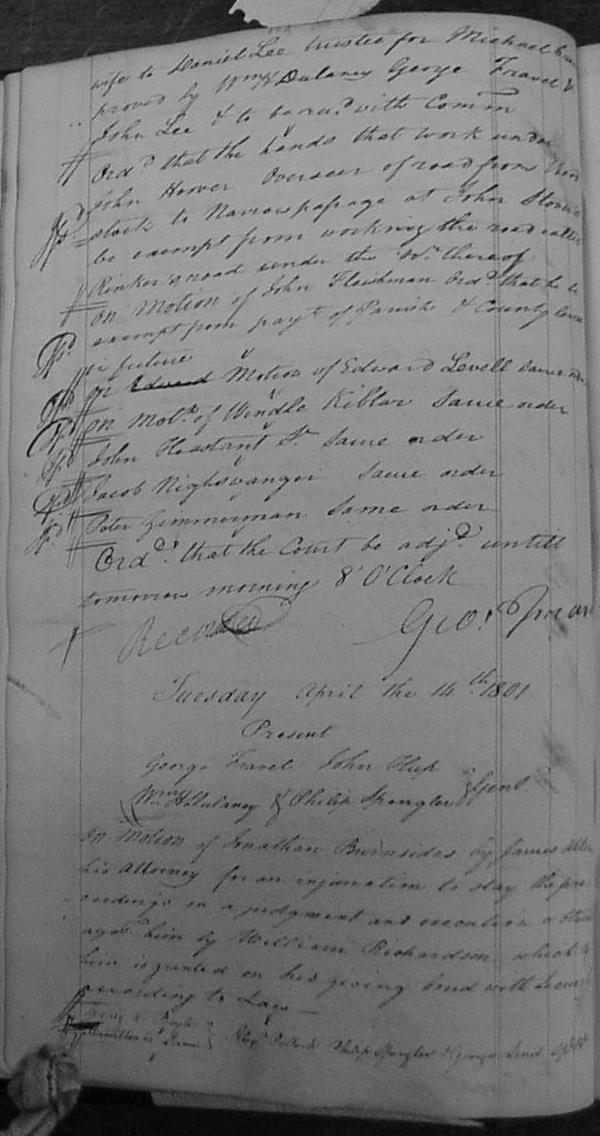 wife to Daniel Lee trustee for Michael
proved by Wm H Dulaney George Fravel &
John Lee & to be red with Comm
Ordd that the hands that work under
John Hoover Overseer of road from
stock to Narrow passage at John Stover's
be exempt from working the road called
Rinker's road under the Or. thereof
On Motion of John Fleishman Ordd that he be
exempt from payt of Parish & County Levies
in future
On Edward Motion of Edward Levell same order
On Motn of Windle Kibler Same order
John Hastant Sr Same order
Jacob Nighswanger Same order
Peter Zimmerman Same order
Ordd that the Court be adjd untill
tomorrow morning 8 O'Clock
Recorded Geo.
Tuesday April the 14th 1801
Present
George Fravel John
Wm H Dulaney & Philip Spengler Gent
On Motion of Jonathan Burnsides by James
his Attorney for an injunction to stay the pro
ceedings on a judgment and execution obtain
agst him by William Richardson which to
him is granted on his giving bond with Security
according to Law
Philip Spengler & George